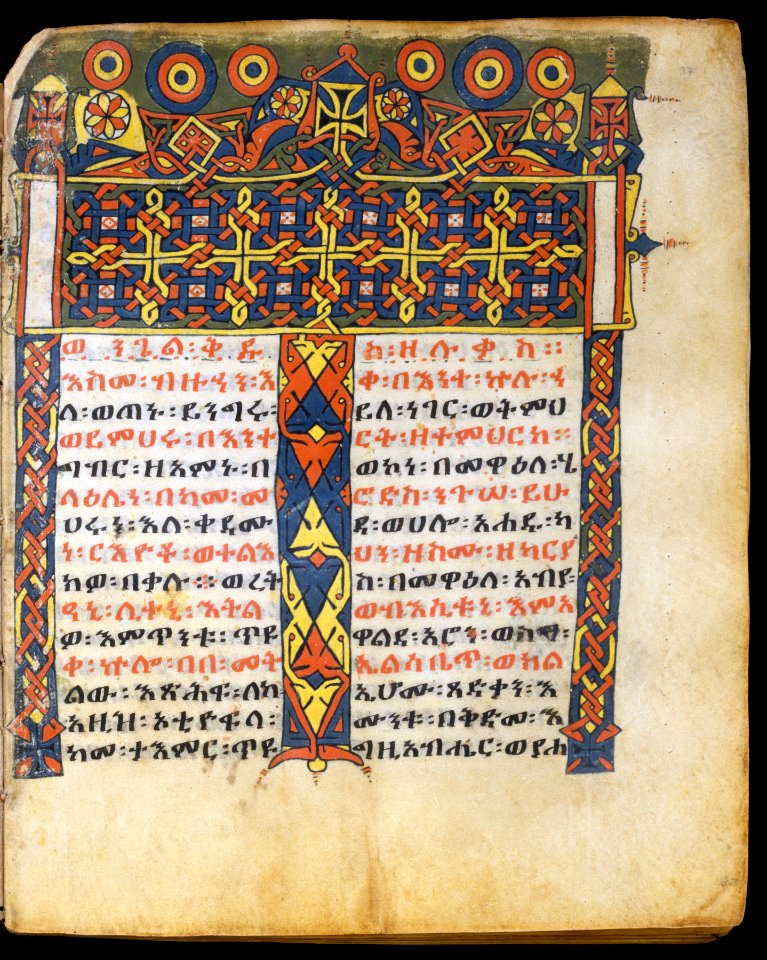 ወንጌል፡ቅዱስ፡ዘሉቃስ፡፡
እስመ፡ብዙኃን፡እ
ለ፡ወጠኑ፡ይንግሩ፡
ወይምህሩ፡በእንተ
ግብር፡ዘአምኑ፡በ
ላዕሌነ፡በከመ፡መ
ሀሩነ፡እለ፡ቀዲሙ
ነ፡ርእዮቶ፡ወተልእ
ክዎ፡በቃሉ፡፡ወረት
ዓኒ፡ሊተኒ፡እትል
ዎ፡እምጥንቱ፡ጥዩ
ቀ፡ኵሎ፡በበ፡መት
ልው፡እጽሐፍ፡ለከ
አዚዝ፡ኦቴዮፍላ፡
ከመ፡ተአምር፡ጥዩ
ቀ፡በእንተ፡ኵሉ፡ኃ
ይለ፡ነገር፡ወትምህ
ርት፡ዘተምህርከ፡፡
ወኮነ፡በመዋዕለ፡ሄ
ሮድስ፡ንጉሠ፡ይሁ
ዳ፡ወሀሎ፡አሐዱ፡ካ
ህን፡ዘስሙ፡ዘካርያ
ስ፡በመዋዕለ፡አብያ፡
ወብእሲቱኒ፡እምአ
ዋልደ፡አሮን፡ወስማ፡
ኤልሳቤጥ፡ወክል
ኤሆሙ፡ጻድቃን፡እ
ሙንቱ፡በቅድመ፡እ
ግዚአብሔር፡ወየሐ